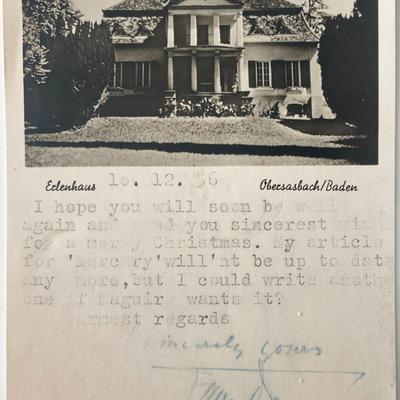 Erlenhaus 10. 12. 56 Obersasbach/Baden
I hope you will soon be well
again and send you sincerest
for a merry Christmas. My article
for 'Mercury'will'nt be up to date
any more,but I could write anothe
one if Maguire wants it?
Warmest regards
sincerely yours